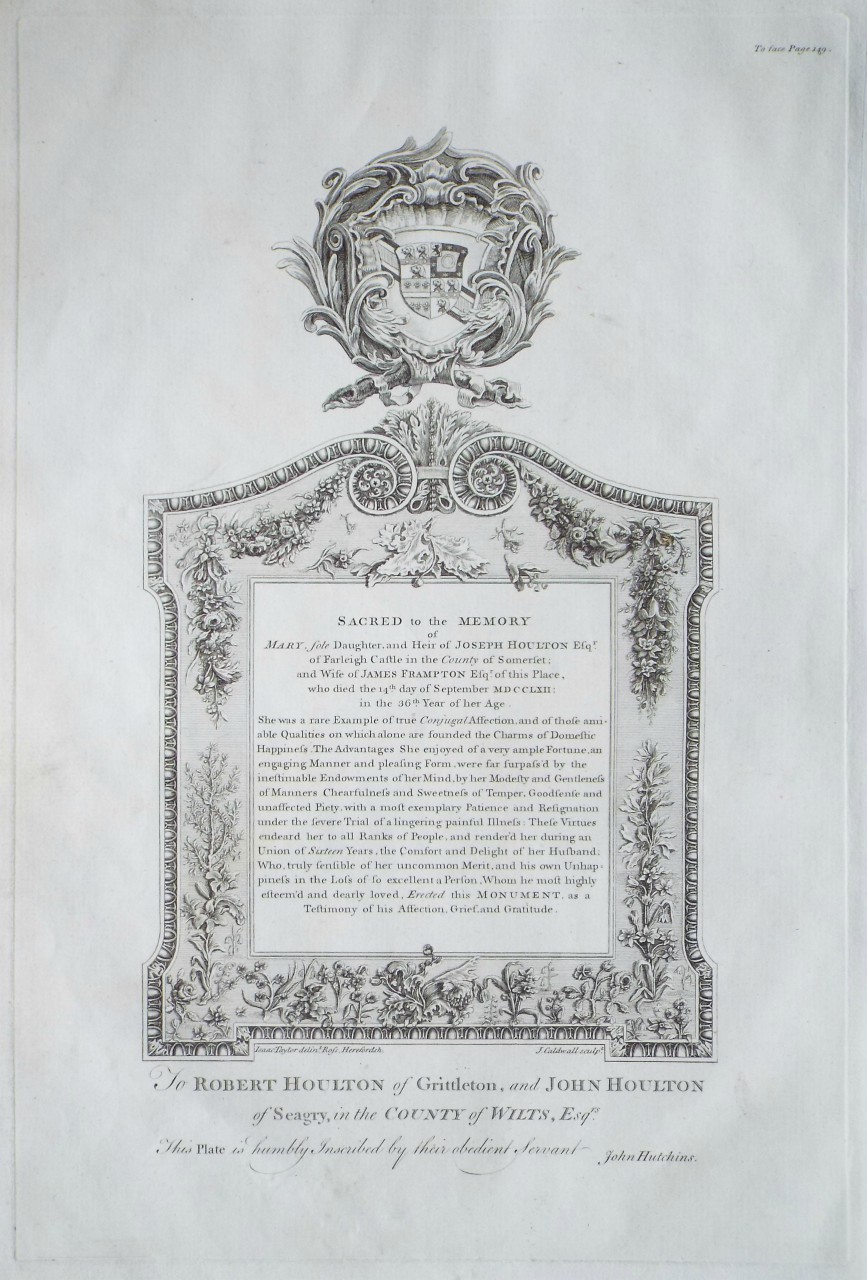 To face Page 149.
SACRED to the MEMORY
of
MARY, ſole Daughter, and Heir of JOSEPH HOULTON Eſqr.
of Farleigh Caſtle in the County of Somerſet;
and Wife of JAMES FRAMPTON Eſqr. of this Place,
who died the 14th day of September MDCCLXII:
in the 36th Year of her Age.
She was a rare Example of true Conjugal Affection, and of thoſe ami-
able Qualities on which alone are founded the Charms of Domeſtic
Happineſs. The Advantages She enjoyed of a very ample Fortune, an
engaging Manner and pleaſing Form, were far ſurpaſs'd by the
ineſtimable Endowments of her Mind, by her Modeſty and Gentleneſs
of Manners Chearfulneſs and Sweetneſs of Temper, Goodſenſe and
unaffected Piety, with a moſt exemplary Patience and Reſignation
under the ſevere Trial of a lingering painful Illneſs: Theſe Virtues
endeard her to all Ranks of People, and render'd her during an
Union of Sixteen Years, the Comfort and Delight of her Huſband;
Who, truly ſenſible of her uncommon Merit, and his own Unhap-
pineſs in the Loſs of ſo excellent a Perſon, Whom he moſt highly
eſteem'd and dearly loved, Erected this MONUMENT, as a
Teſtimony of his Affection, Grief, and Gratitude.
Isaac Taylor delint. Roſs, Herefordsh.
J. Caldwall sculpt.
To ROBERT HOULTON of Grittleton, and JOHN HOULTON
of Seagry, in the COUNTY of WILTS, Eſqrs.
This Plate is humbly Inscribed by their obedient Servant
John Hutchins.